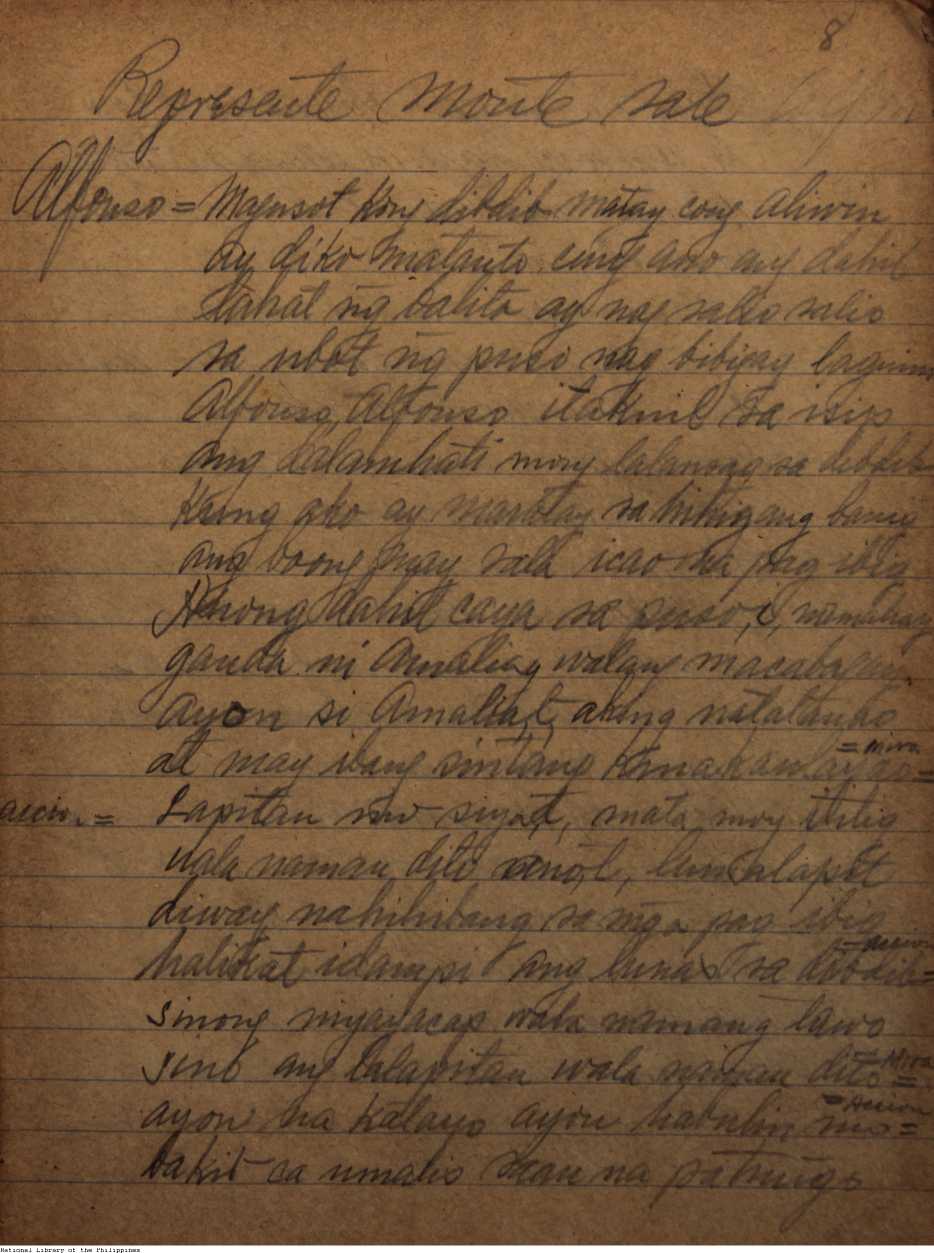 8
Represente Monte sale
Alfonso = Mgusot kong dibdib matay cong aliwin
ay diko matanto cung ano ang dahil
lahat ng balita ay nag salio salio
sa ubot ng puso nag bibigay
Alfonso, Alfonso itaknil sa isip
ang dalamhati mong lalansag sa dibdib
Kung ako ay maratay sa hihigang banig
ang boong may sala icao na pag ibig
Anong dahil caya sa puso, i, namahay
ganda ni Amalia, walang
ayon si Amalia, t, aking natatanto
at may ibang sintang
= mira
accion = Lapitan mo siya, t, mata moy ititig
wala naman dito ano, t, lumalapit
diway nahihibang sa mga pag ibig
halikat idampi ang lunas sa dibdib =
accion
sinong niyayacap wala namang tawo
sino ang lalapitan wala naman dito =
= Mira
ayon na kalayo ayon habulin mo =
= Accion
bakit ca umalis saan na patungo
National Library of the Philippines